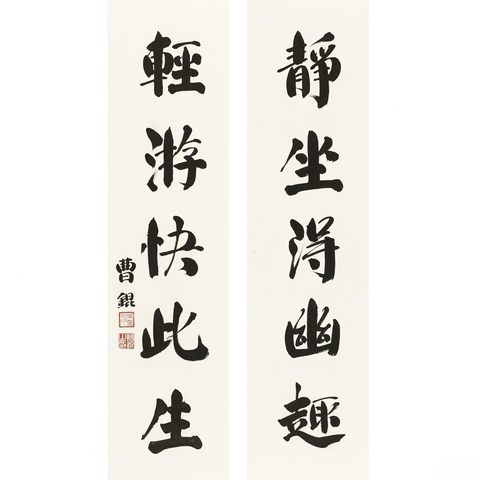 靜坐得幽趣
輕游快此生
曹錕